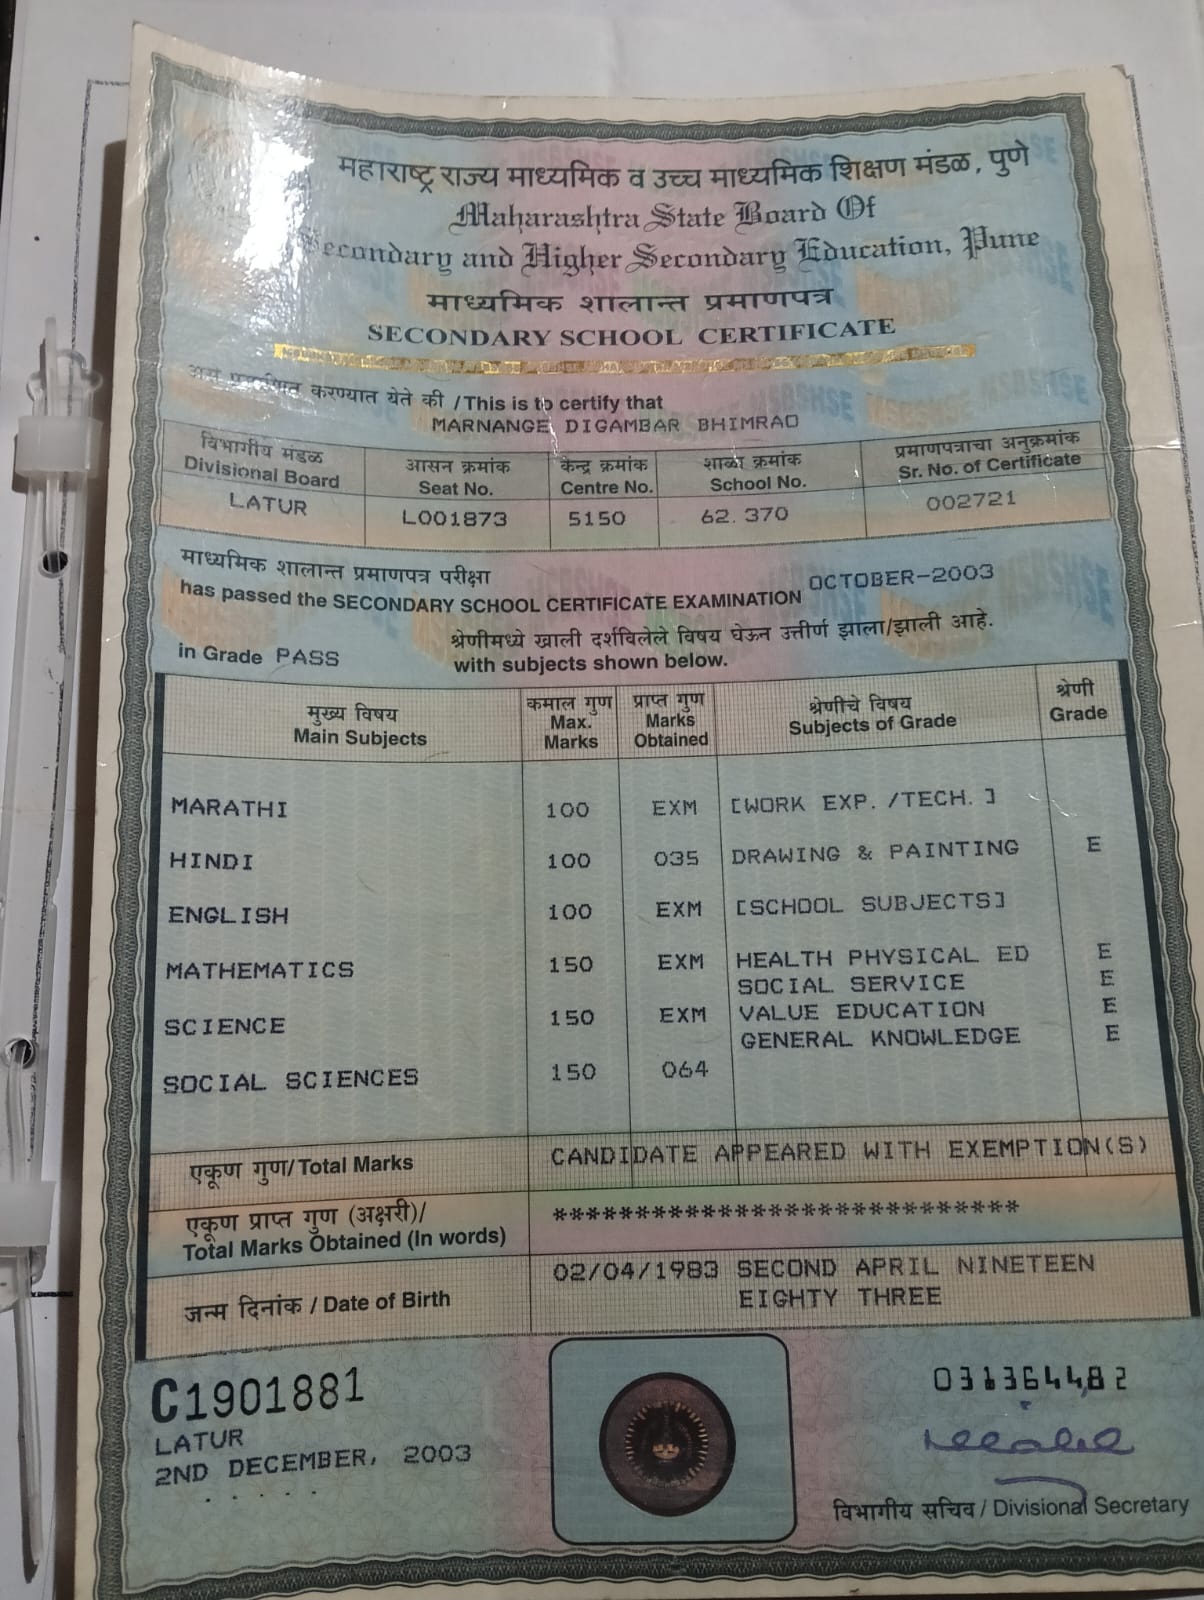 महाराष्ट्र राज्य माध्यमिक व उच्च माध्यमिक शिक्षण मंडळ, पुणे
Maharashtra State Board Of
Secondary and Higher Secondary Education, Pune
माध्यमिक शालान्त प्रमाणपत्र
SECONDARY SCHOOL CERTIFICATE
असे प्रमाणित करण्यात येते की / This is to certify that
MARNANGE DIGAMBAR BHIMRAO
विभागीय मंडळ आसन क्रमांक केन्द्र क्रमांक शाळा क्रमांक प्रमाणपत्राचा अनुक्रमांक
Divisional Board Seat No. Centre No. School No. Sr. No. of Certificate
LATUR L001873 5150 62.370 002721
माध्यमिक शालान्त प्रमाणपत्र परीक्षा
has passed the SECONDARY SCHOOL CERTIFICATE EXAMINATION OCTOBER-2003
श्रेणीमध्ये खाली दर्शविलेले विषय घेऊन उत्तीर्ण झाला/झाली आहे.
in Grade PASS with subjects shown below.
मुख्य विषय कमाल गुण प्राप्त गुण श्रेणीचे विषय श्रेणी
Main Subjects Max. Marks Marks Obtained Subjects of Grade Grade
MARATHI 100 EXM [WORK EXP. /TECH. ]
HINDI 100 035 DRAWING & PAINTING E
ENGLISH 100 EXM [SCHOOL SUBJECTS]
MATHEMATICS 150 EXM HEALTH PHYSICAL ED E
SOCIAL SERVICE E
SCIENCE 150 EXM VALUE EDUCATION E
GENERAL KNOWLEDGE E
SOCIAL SCIENCES 150 064
एकूण गुण/ Total Marks CANDIDATE APPEARED WITH EXEMPTION(S)
एकूण प्राप्त गुण (अक्षरी)/
Total Marks Obtained (In words) ****************************
जन्म दिनांक / Date of Birth 02/04/1983 SECOND APRIL NINETEEN
EIGHTY THREE
C1901881
LATUR
2ND DECEMBER, 2003
विभागीय सचिव / Divisional Secretary